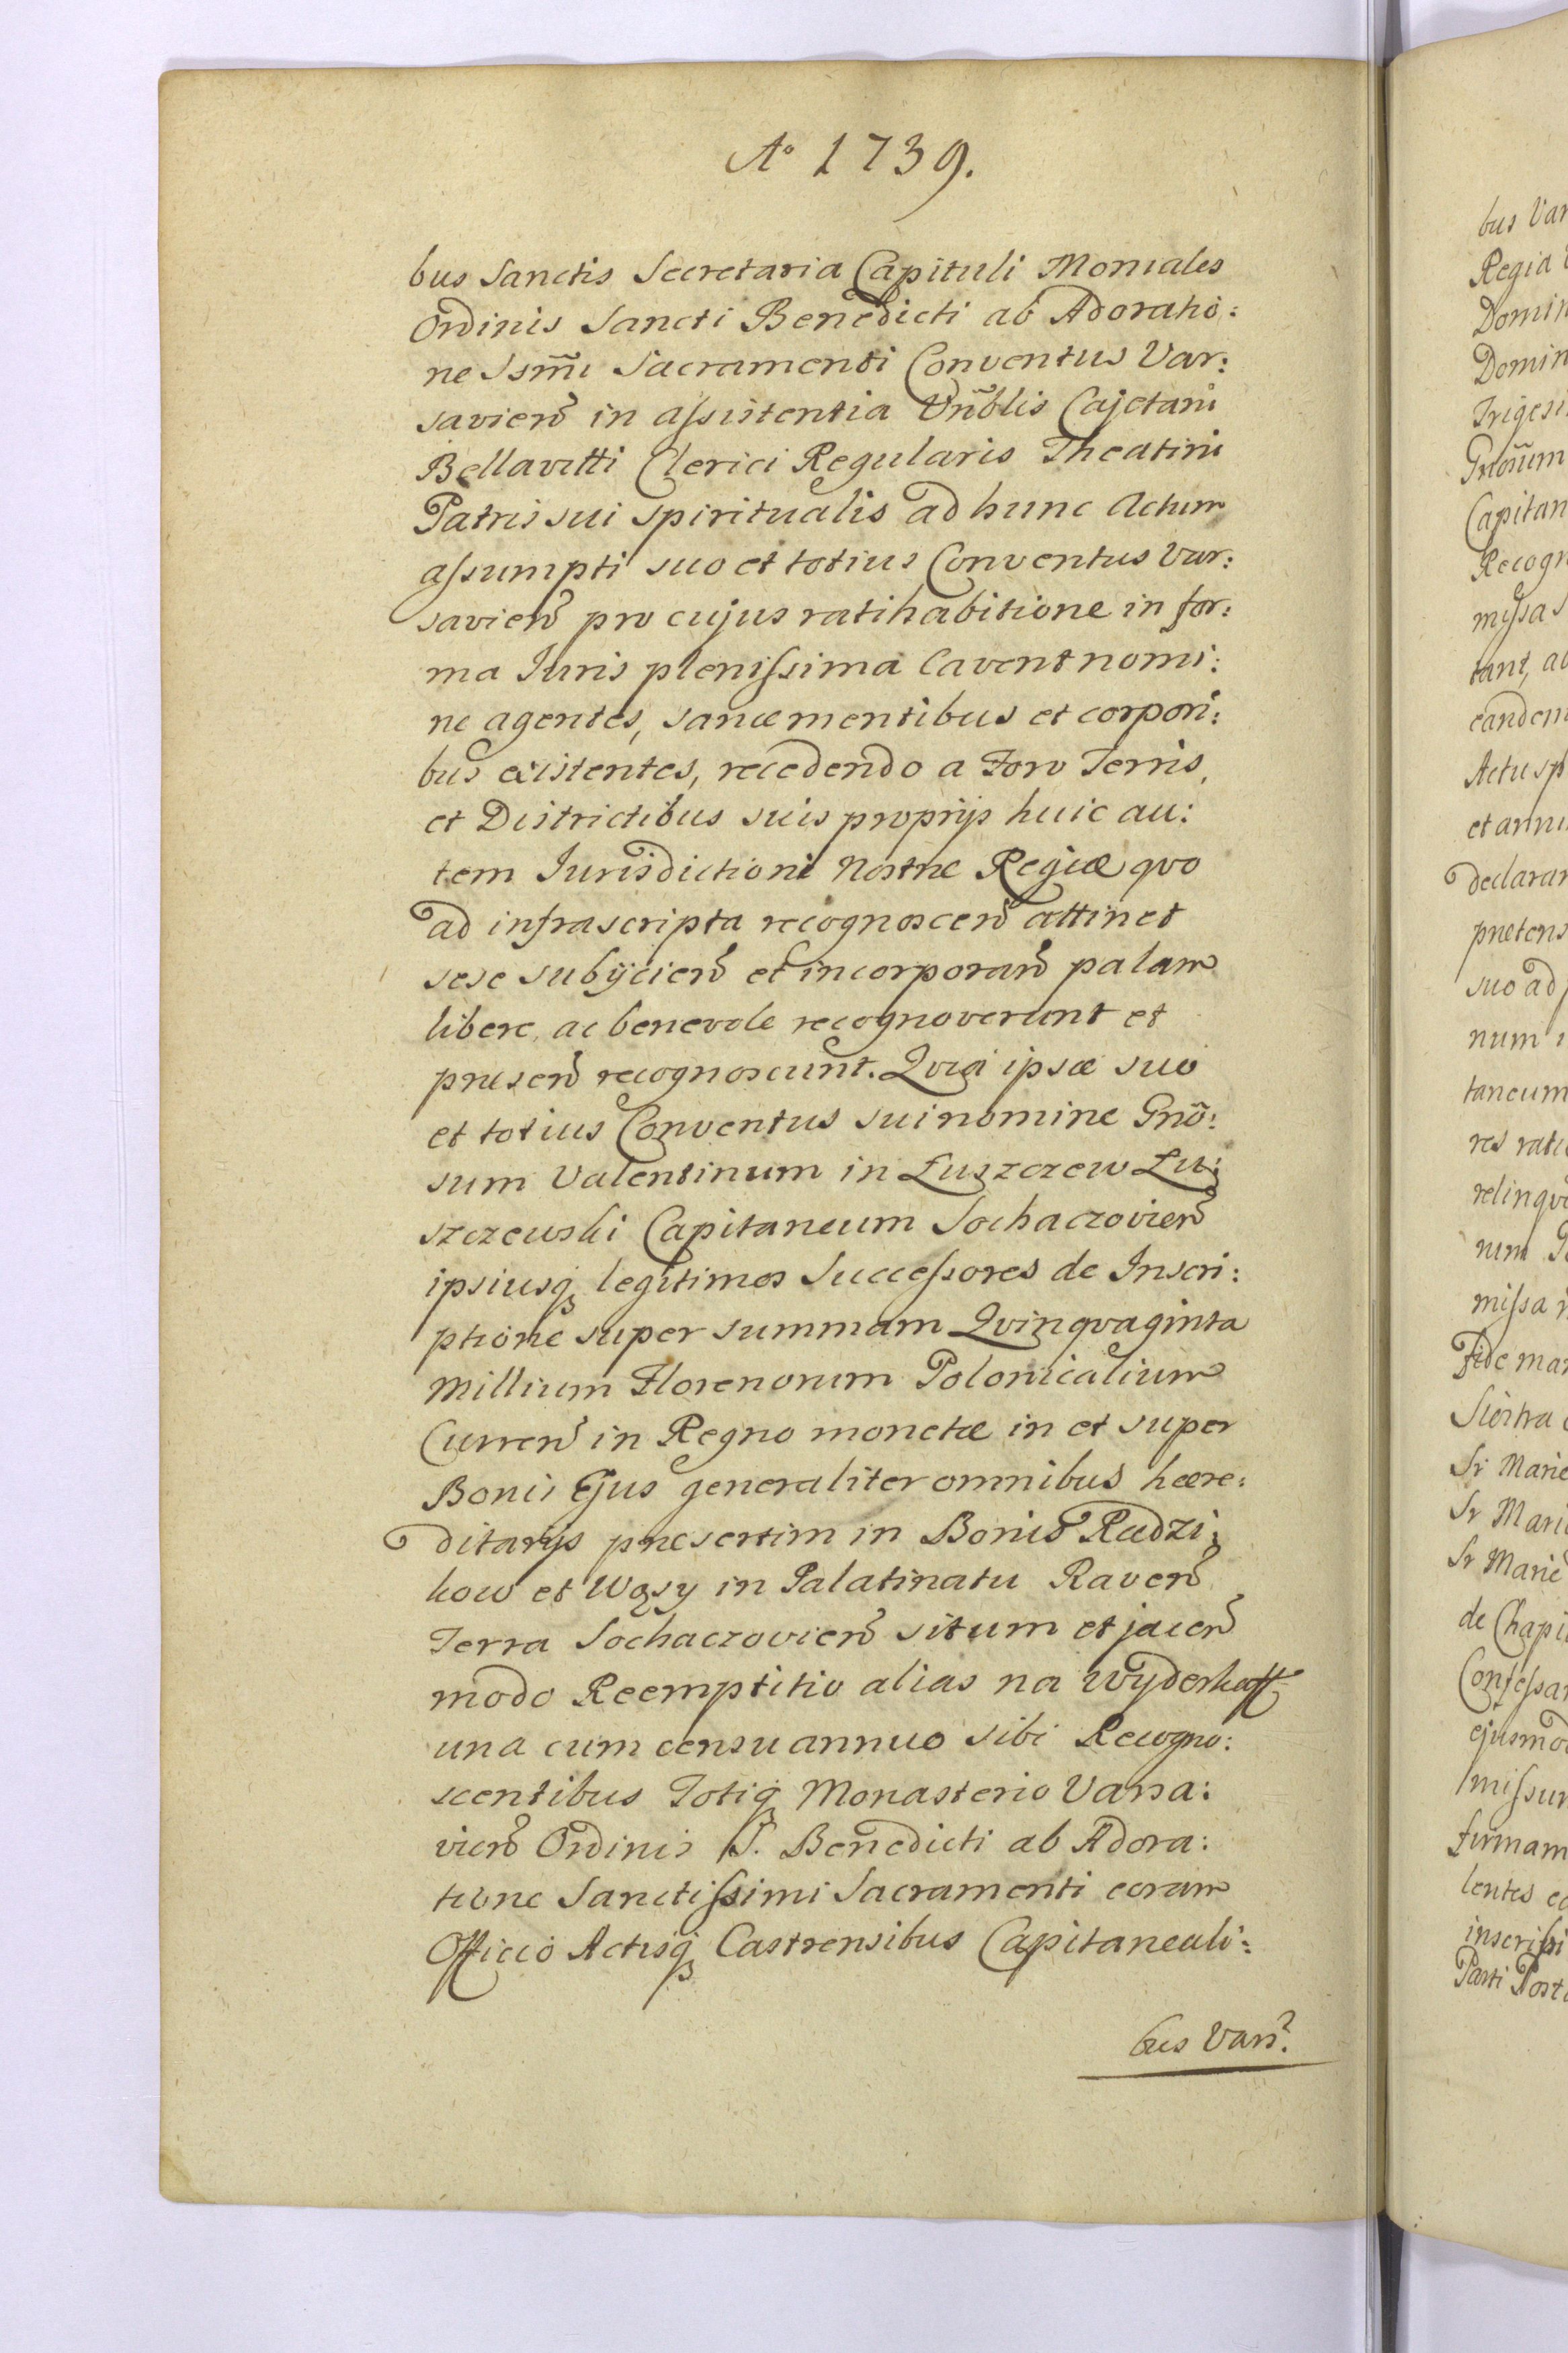 Aº 1739.
bus Sanctis Secretaria Capituli Moniales
Ordinis Sancti Benedicti ab Adoratio:
ne Ssm̃i Sacramenti Conventus Var:
savien̄ in assistentia Vn̄blis Cajetani
Bellavitti Clerici Regularis Theatini
Patris sui spiritualis ad hunc Actum
assumpti suo et totius Conventus Var:
savien̄ pro cujus ratihabitione in for:
ma Iuris plenissima Cavent nomi:
ne agentes, sanæ mentibus et corpori:
bus existentes, recedendo a Foro Terris,
et Districtibus suis proprijs huic au:
tem Iurisdictioni Nostræ Regiæ quo
ad infrascripta recognoscen̄ attinet
sese subijcien̄ et incorporan̄ palam
libere, ac benevole recognoverunt et
præsen̄ recognoscunt. Qvia ipsæ suo
et totius Conventus sui nomine Gn̄o:
sum Valentinum in Łuszczew Łu:
szczewski Capitaneum Sochaczovien̄
ipsiusq̨ legitimos Successores de Inscri:
ptione super summam Qvinqvaginta
Millium Florenorum Polonicalium
Curren̄ in Regno monetæ in et super
Bonis Ejus generaliter omnibus hære:
ditarijs præsertim in Bonis Radzi:
kow et Wąsy in Palatinatu Raven̄
Terra Sochaczovien̄ situm et jacen̄
modo Reemptitio alias na Wyderkaff
una cum censu annuo sibi Recogno:
scentibus Totiq̨ Monasterio Varsa:
vien̄ Ordinis S. Benedicti ab Adora:
tione Sanctissimi Sacramenti coram
Officio Actisq̨ Castrensibus Capitaneali:
bus Vars̄.
bus Var
Regia
Domin
Domin
Trigesi
Gnōrum
Capitan
Recogn
missas
tant, ac
eandem
Actu sp
et annu
declarar
prætens
suo ad
num
taneum
res ratu
relinqv
num
missa
fide man
Siostra
Sr Marie
Sr Marie
Sr Marie
de Chapi
Confessar
ejusmod
missum
firmam
lentes
inscripti
Parti Post